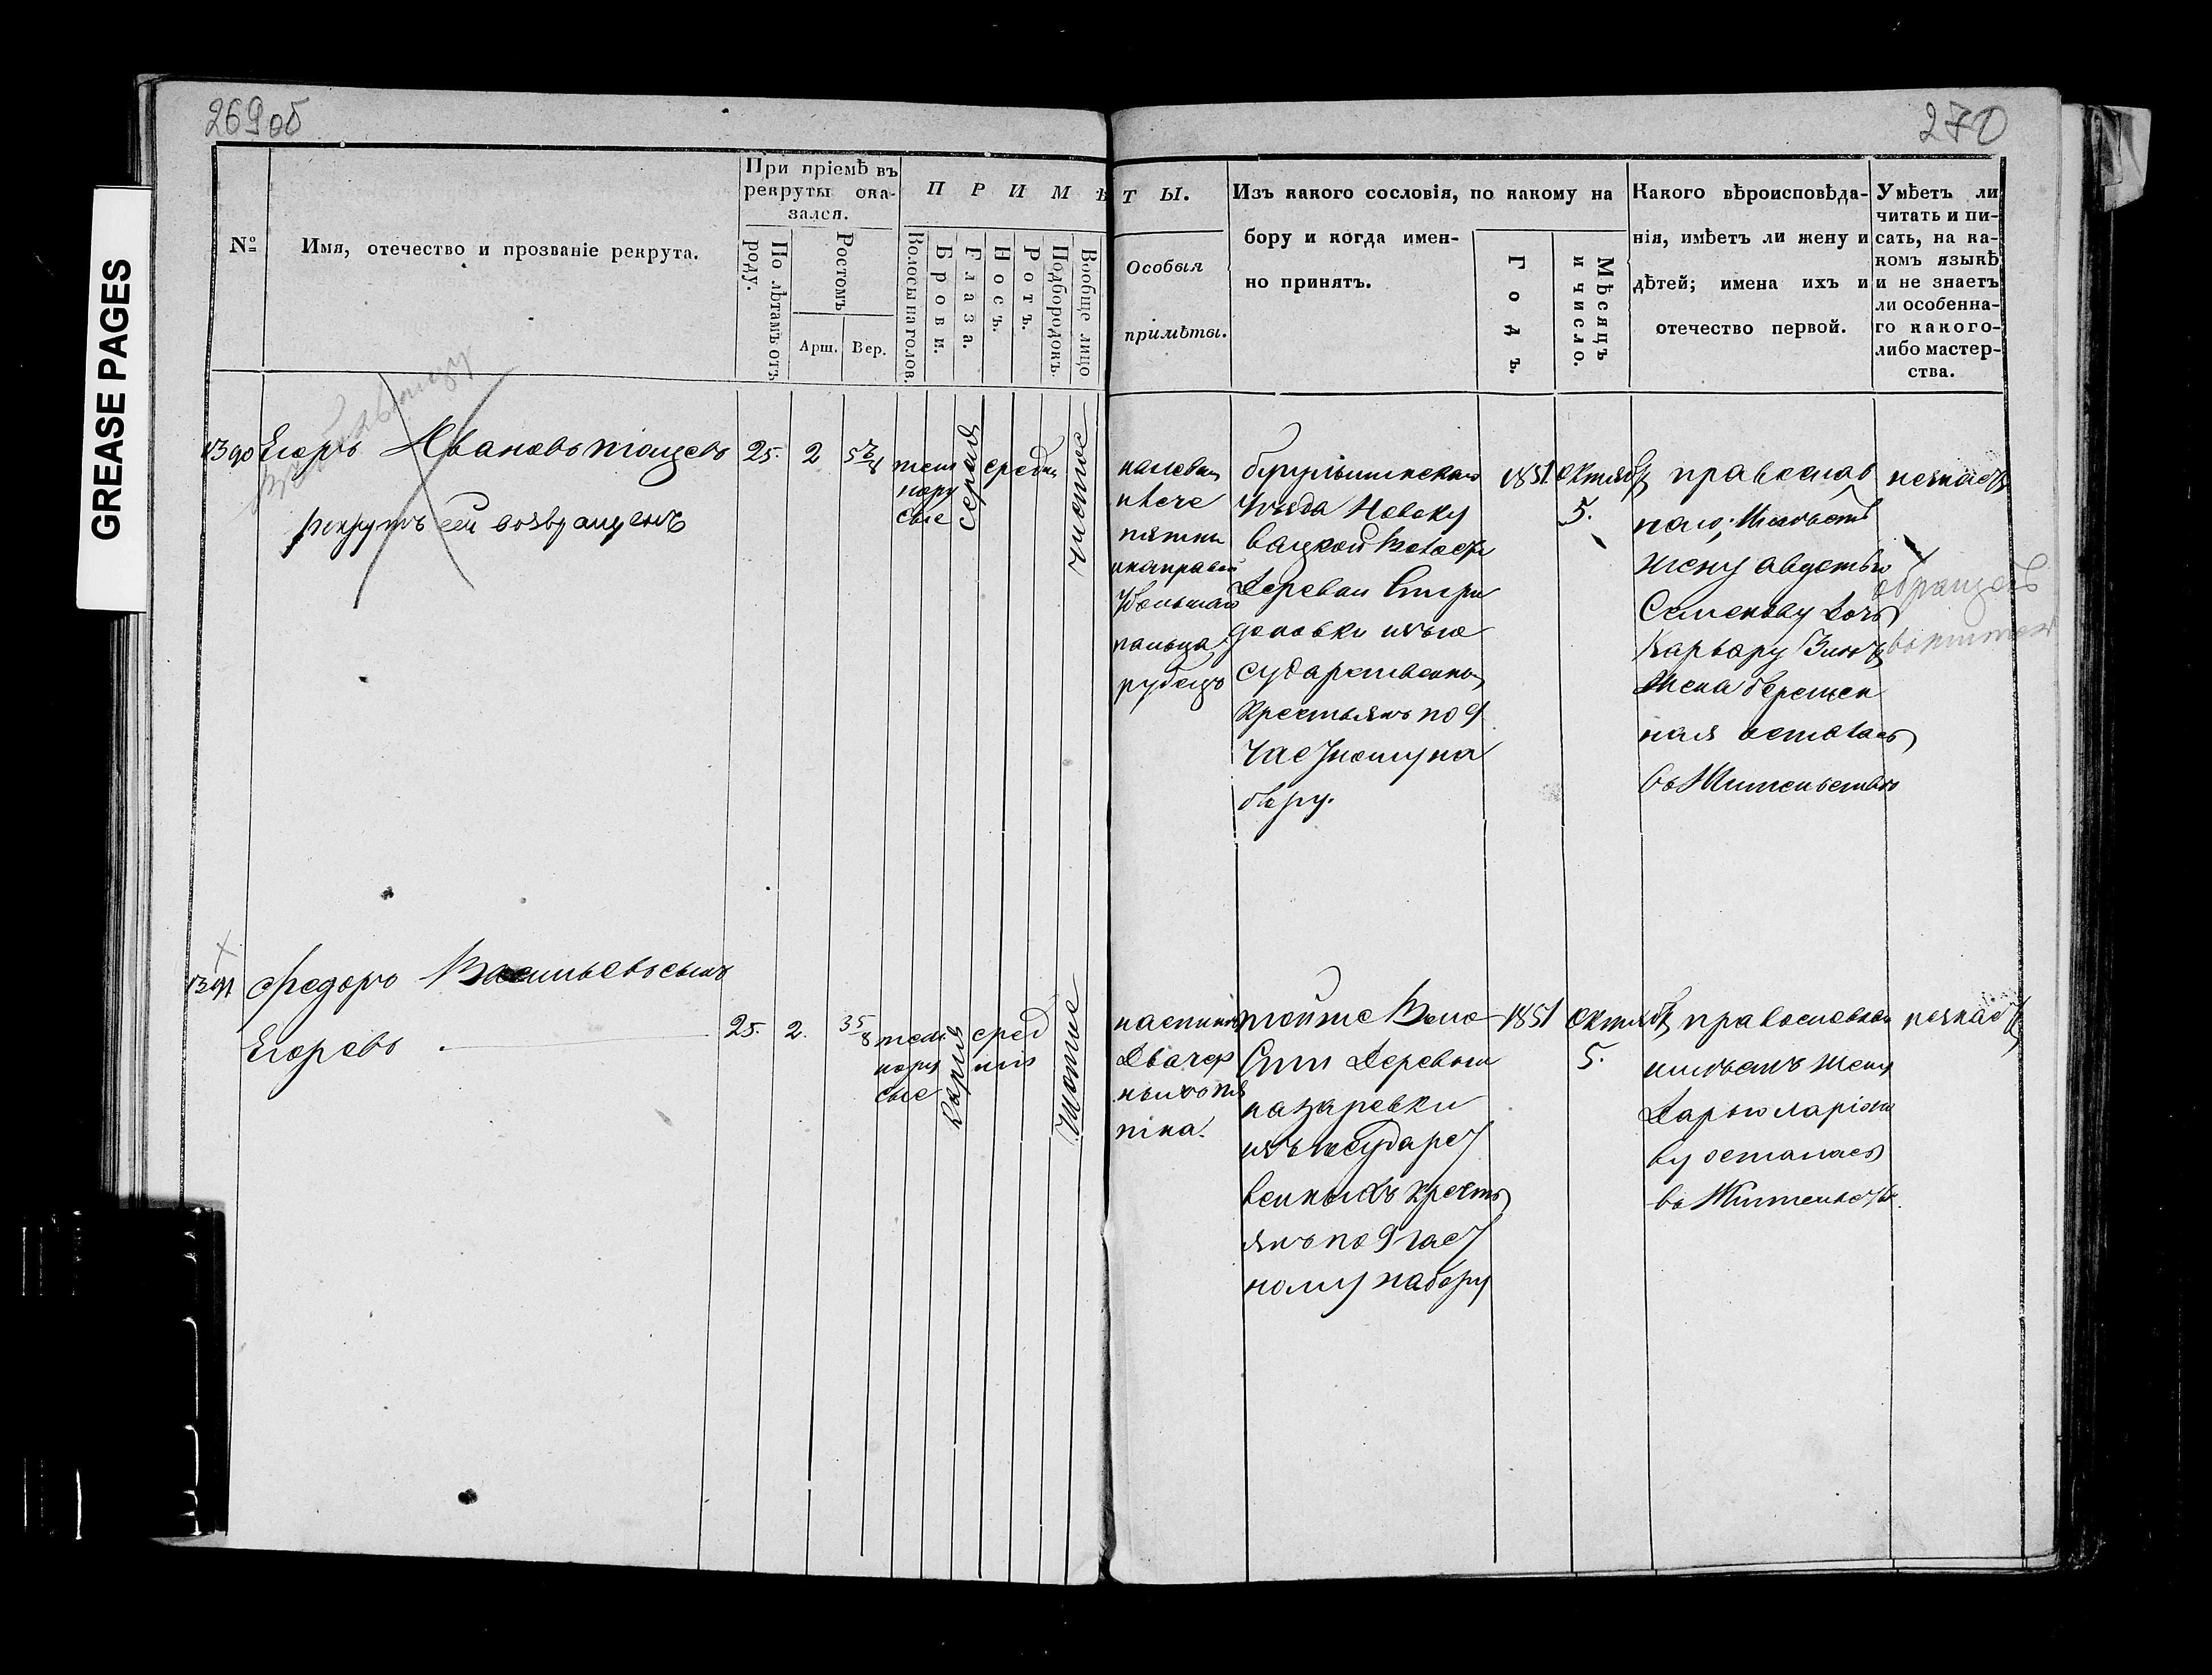 269об
270
GREASE PAGES
№
Имя, отечество и прозваніе рекрута.
При пріемѣ въ
рекруты ока-
зался.
По лѣтамъ отъ
роду.
Ростомъ
Арш.
Вер.
П Р И М Ѣ Т Ы.
Волосы на голов.
Брови.
Глаза.
Носъ.
Ротъ.
Подбородокъ.
Вообще лицо
Особыя
примѣты.
Изъ какого сословія, по какому на
бору и когда имен-
но принятъ.
Годъ.
Мѣсяцъ
и число.
Какого вѣроисповѣда-
нія, имѣетъ ли жену и
дѣтей; имена ихъ и
отечество первой.
Умѣетъ ли
читать и пи-
сать, на ка-
комъ языкѣ
и не знаетъ
ли особенна-
го какого-
либо мастер-
ства.
1390
Егоръ Ивановъ
рекрутъ сей возвращенъ
25.
2
5 7/8
темн
нору
сые
серая
средн
чистое
на левом
плече
пятны
на правой
большаго
пальца
рубецъ
Уѣзда
волости
Деревни Спири
доновки изъ го
сударственны
Крестьянъ по 9
частному на
бору.
1851
октяб
5.
православ
наго, Имѣетъ
жену авдотью
Семенову дочь
Варвару
жена беремен
ная осталась
въ Жительстве
незнаетъ
1391
Федоръ Васильевъ сынъ
Егоровъ
25.
2.
3 5/8
темн
нору
сые
кария
сред
ния
чистое
на спине
Два чер
ныхъ пя
тна.
тойже Воло
сти Деревни
назаревки
изъ государст
венныхъ крестъ
янъ по 9 част
ному набору
1851
октяб
5.
православнаго
имѣетъ жену
Дарью ларіоно
ву осталась
въ Жительстве
незнаетъ